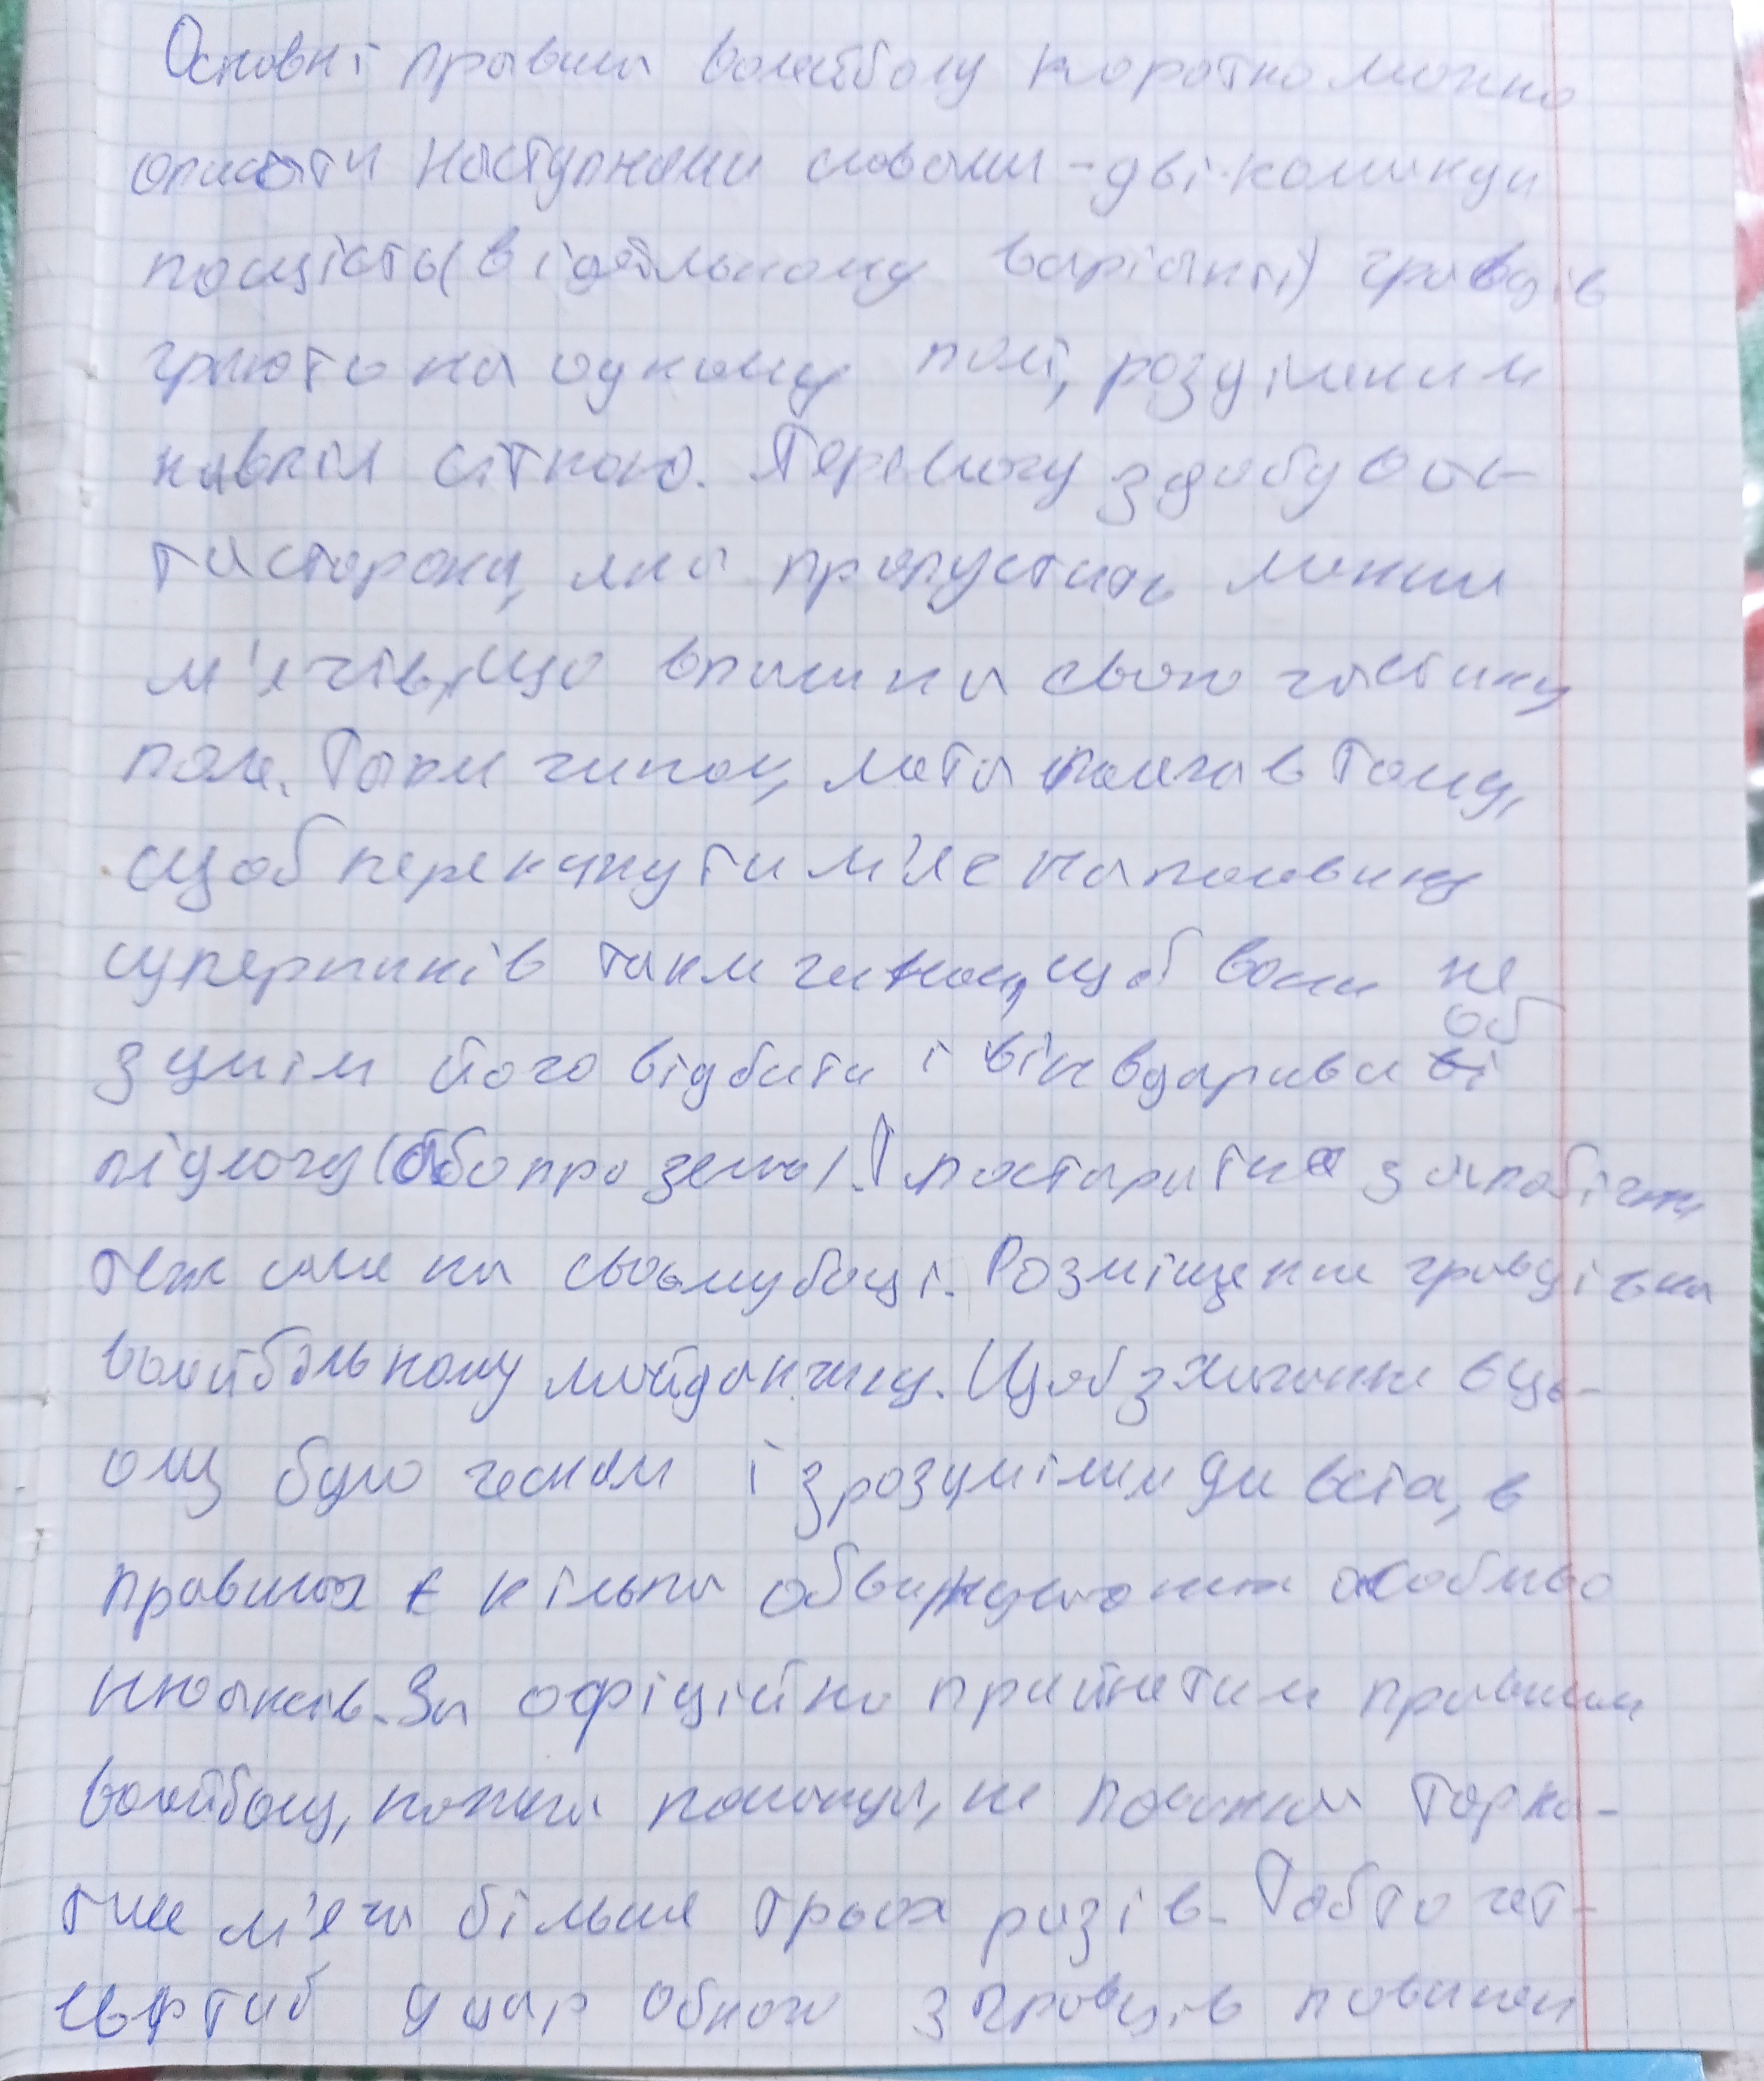 Основні правила волейболу коротко можно
описати наступними словами - дві команди
по шість (в ідеальному варіанті) гравців
грають на одному полі, розділеним
навпіл сіткою. Перемогу здобуває
та сторона, яка пропустить менше
м'ячів, що впали на свою частину
поля. Таким чином, мета полягає в тому,
щоб перекинути м'яч на половину
суперників таким чином, щоб вони не
зуміли його відбити і він вдарився об
підлогу (або про землю). І постаратися запобігти
теж саме на своєму боці. Розміщення гравців на
волейбольному майданчику. Щоб змагання в ць-
ому було чесним і зрозумілим для всіх, в
правилах є кілька особливо
нюансів. За офіційно прийнятим правилам
волейболу, кожна команда, не повинна торка-
тися м'яча більше трьох разів. Тобто чет-
вертий удар одного з гравців повинен